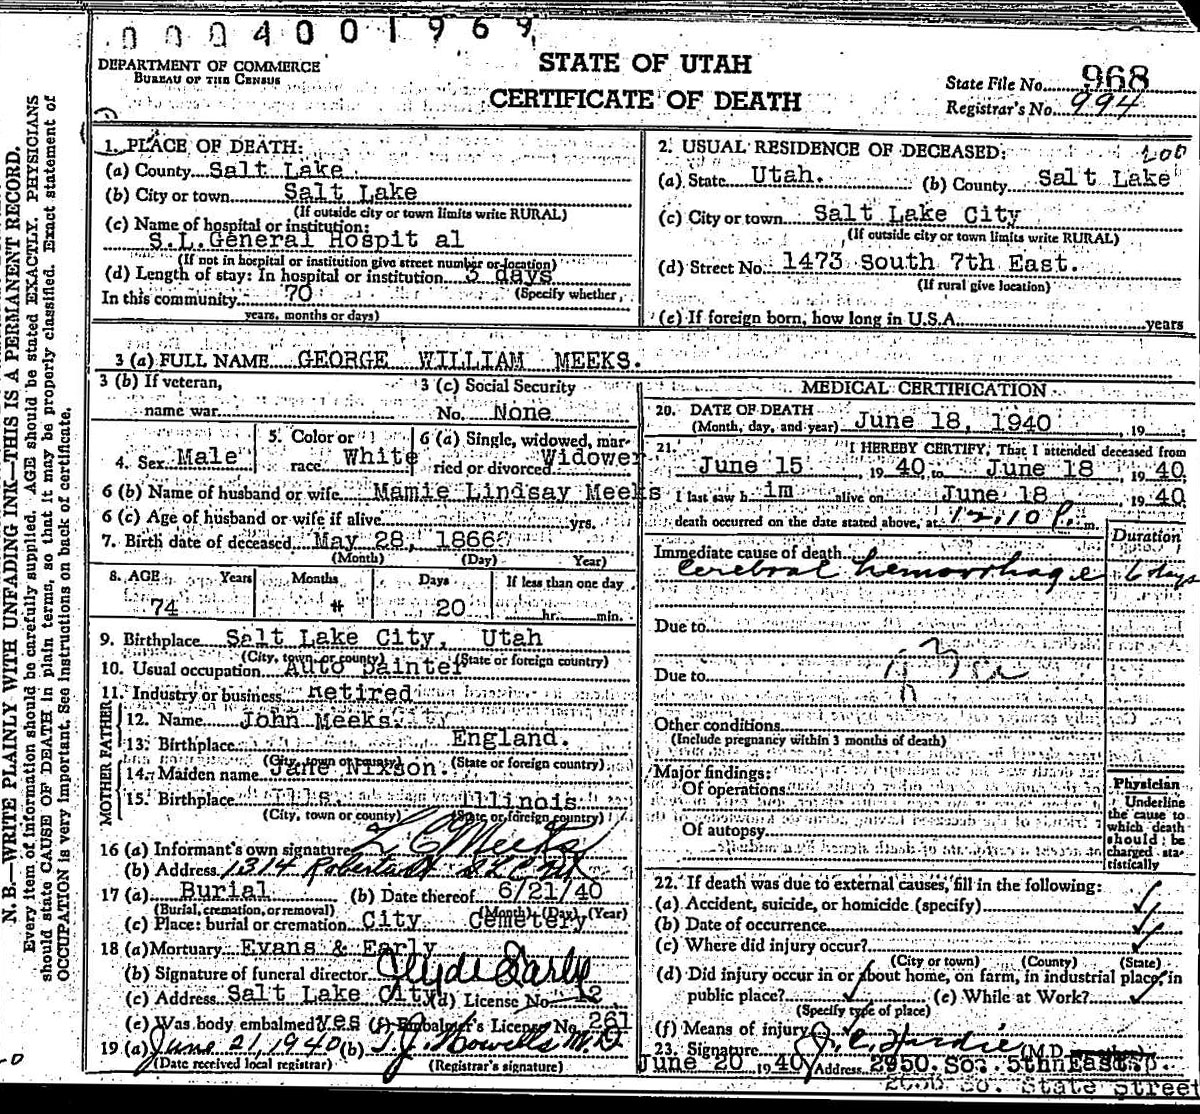 0004001969
DEPARTMENT OF COMMERCE
BUREAU OF THE CENSUS
STATE OF UTAH
CERTIFICATE OF DEATH
State File No. 968
Registrar's No. 994
N. B.—WRITE PLAINLY WITH UNFADING INK—THIS IS A PERMANENT RECORD.
Every item of information should be carefully supplied. AGE should be stated EXACTLY. PHYSICIANS
should state CAUSE OF DEATH in plain terms, so that it may be properly classified. Exact statement of
OCCUPATION is very important. See instructions on back of certificate.
1. PLACE OF DEATH:
(a) County Salt Lake
(b) City or town Salt Lake
(If outside city or town limits write RURAL)
(c) Name of hospital or institution:
S.L.General Hospit al
(If not in hospital or institution give street number or location)
(d) Length of stay: In hospital or institution 3 days
In this community 70 (Specify whether
years, months or days)
2. USUAL RESIDENCE OF DECEASED: 200
(a) State Utah. (b) County Salt Lake
(c) City or town Salt Lake City
(If outside city or town limits write RURAL)
(d) Street No. 1473 South 7th East.
(If rural give location)
(e) If foreign born, how long in U.S.A. years
3 (a) FULL NAME GEORGE WILLIAM MEEKS.
3 (b) If veteran, name war
3 (c) Social Security No. None
4. Sex Male
5. Color or race White
6 (a) Single, widowed, married or divorced Widower
6 (b) Name of husband or wife Mamie Lindsay Meeks
6 (c) Age of husband or wife if alive yrs.
7. Birth date of deceased May 28, 1866
(Month) (Day) Year)
8. AGE Years Months Days If less than one day
74 # 20 hr. min.
9. Birthplace Salt Lake City, Utah
(City, town, or county) (State or foreign country)
10. Usual occupation Auto painter
11. Industry or business retired
FATHER
12. Name John Meeks.
13. Birthplace England.
(City, town or county) (State or foreign country)
MOTHER
14. Maiden name Jane Nixson.
15. Birthplace Ills. Illinois
(City, town or county) (State or foreign country)
16 (a) Informant's own signature L C Meeks
(b) Address 1314 Roberta St S L C
17 (a) Burial (b) Date thereof 6/21/40
(Burial, cremation, or removal) (Month) (Day) (Year)
(c) Place: burial or cremation City Cemetery
18 (a) Mortuary Evans & Early
(b) Signature of funeral director Clyde Early
(c) Address Salt Lake City (d) License No. 12
(e) Was body embalmed yes (f) Embalmer's License No. 261
19 (a) June 21, 1940 (b) T. J. Howells M.D.
(Date received local registrar) (Registrar's signature)
MEDICAL CERTIFICATION
20. DATE OF DEATH
(Month, day, and year) June 18, 1940, 19
21. I HEREBY CERTIFY, That I attended deceased from
June 15, 1940, to June 18, 1940
I last saw h im alive on June 18, 1940
death occurred on the date stated above, at 12:10 P. m.
Duration
Immediate cause of death
Cerebral hemorrhage 6 days
Due to
Due to
Other conditions
(Include pregnancy within 3 months of death)
Major findings:
Of operations
Of autopsy
Physician
Underline
the cause to
which death
should be
charged sta-
tistically
22. If death was due to external causes, fill in the following:
(a) Accident, suicide, or homicide (specify) ✓
(b) Date of occurrence ✓
(c) Where did injury occur? ✓
(City or town) (County) (State)
(d) Did injury occur in or about home, on farm, in industrial place, in
public place? ✓ (e) While at Work? ✓
(Specify type of place)
(f) Means of injury
23. Signature J. C. Hardie (M.D.
June 20 1940 Address 2950. So. 5th East.
So. State Street